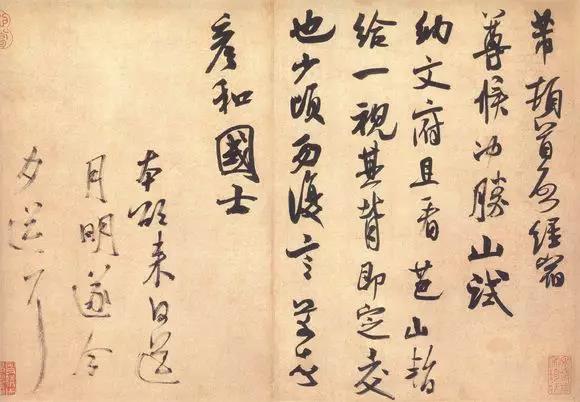 芾頓首啟經宿
尊候沖勝山試
納文府且看芭山暫
給一視其背即定交
也少頃勿復言芾頓首
彥和國士
本欲來日送
月明遂今
夕送耳